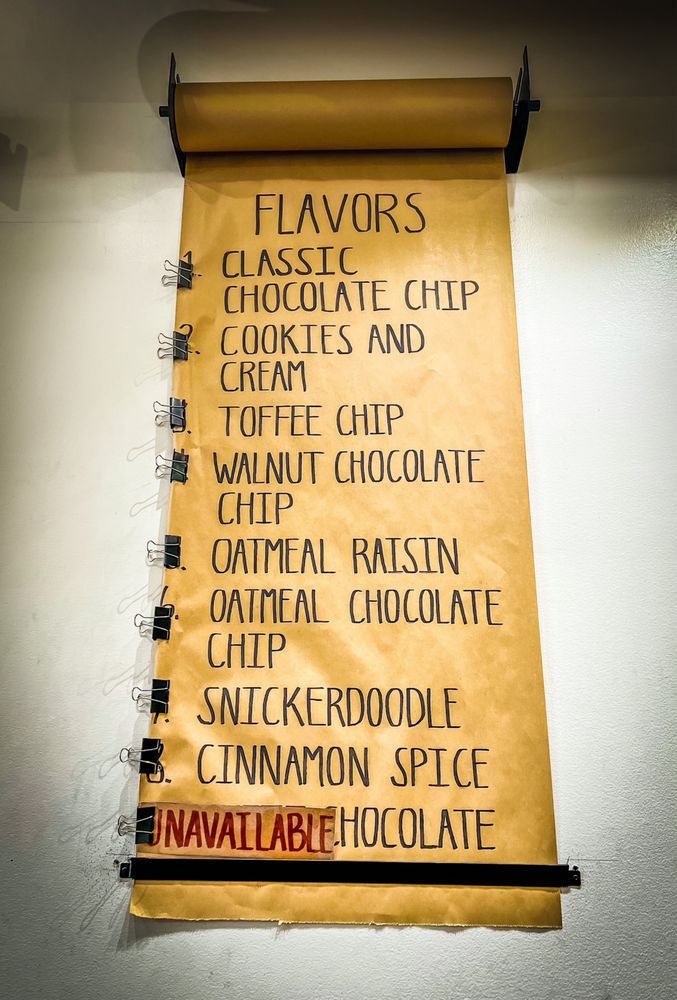 FLAVORS
1. CLASSIC
CHOCOLATE CHIP
2. COOKIES AND
CREAM
TOFFEE CHIP
WALNUT CHOCOLATE
CHIP
OATMEAL RAISIN
OATMEAL CHOCOLATE
CHIP
7. SNICKERDOODLE
8. CINNAMON SPICE
UNAVAILABLE CHOCOLATE